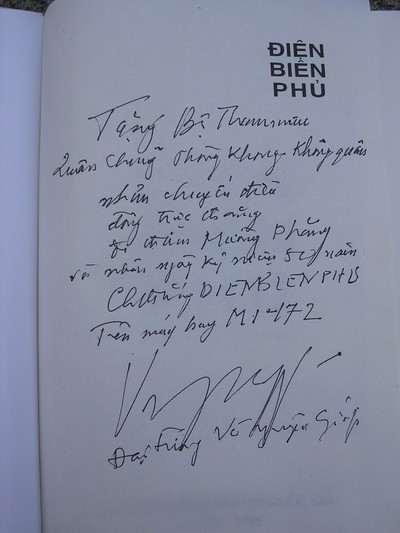 ĐIỆN
BIÊN
PHỦ
Tặng Bộ Tham mưu
Quân chủng Phòng Không - Không quân
nhân chuyến đi
đi thăm Mường Phăng
và nhân ngày kỷ niệm năm
Chiến thắng DIENBIENPHU
Trên máy bay MI-172
Đại tướng Võ Nguyên Giáp